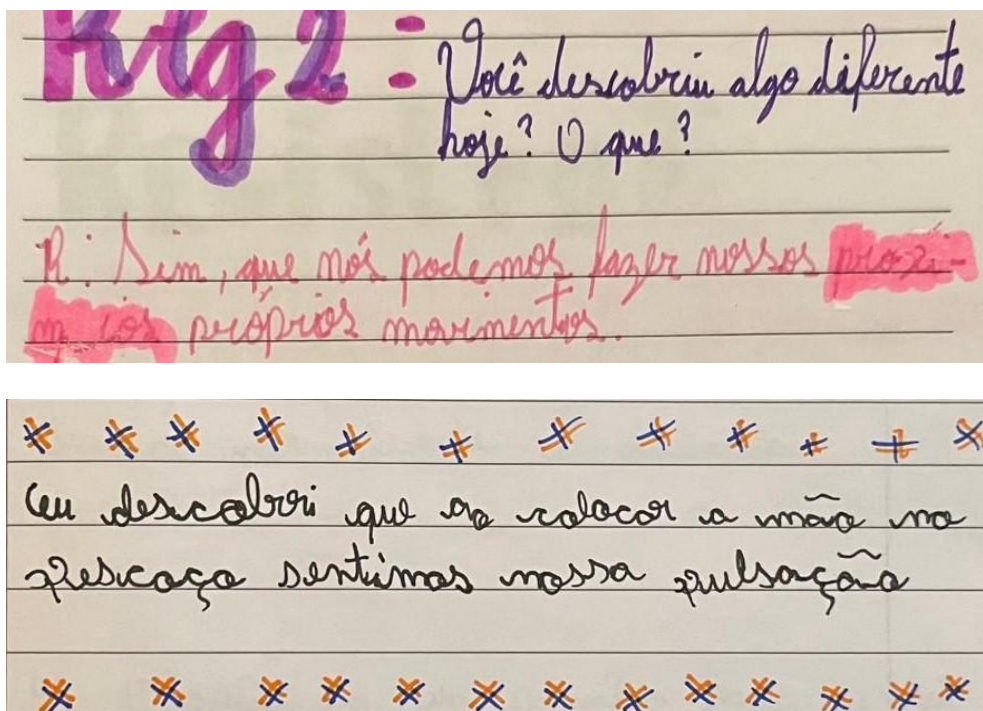 Krg 2: Você descobriu algo diferente
hoje? O que?
R: Sim, que nós podemos fazer nossos proxi-
m cós próprios movimentos.
Eu descobri que ao colocar a mão no
pescoço sentimos nossa pulsação